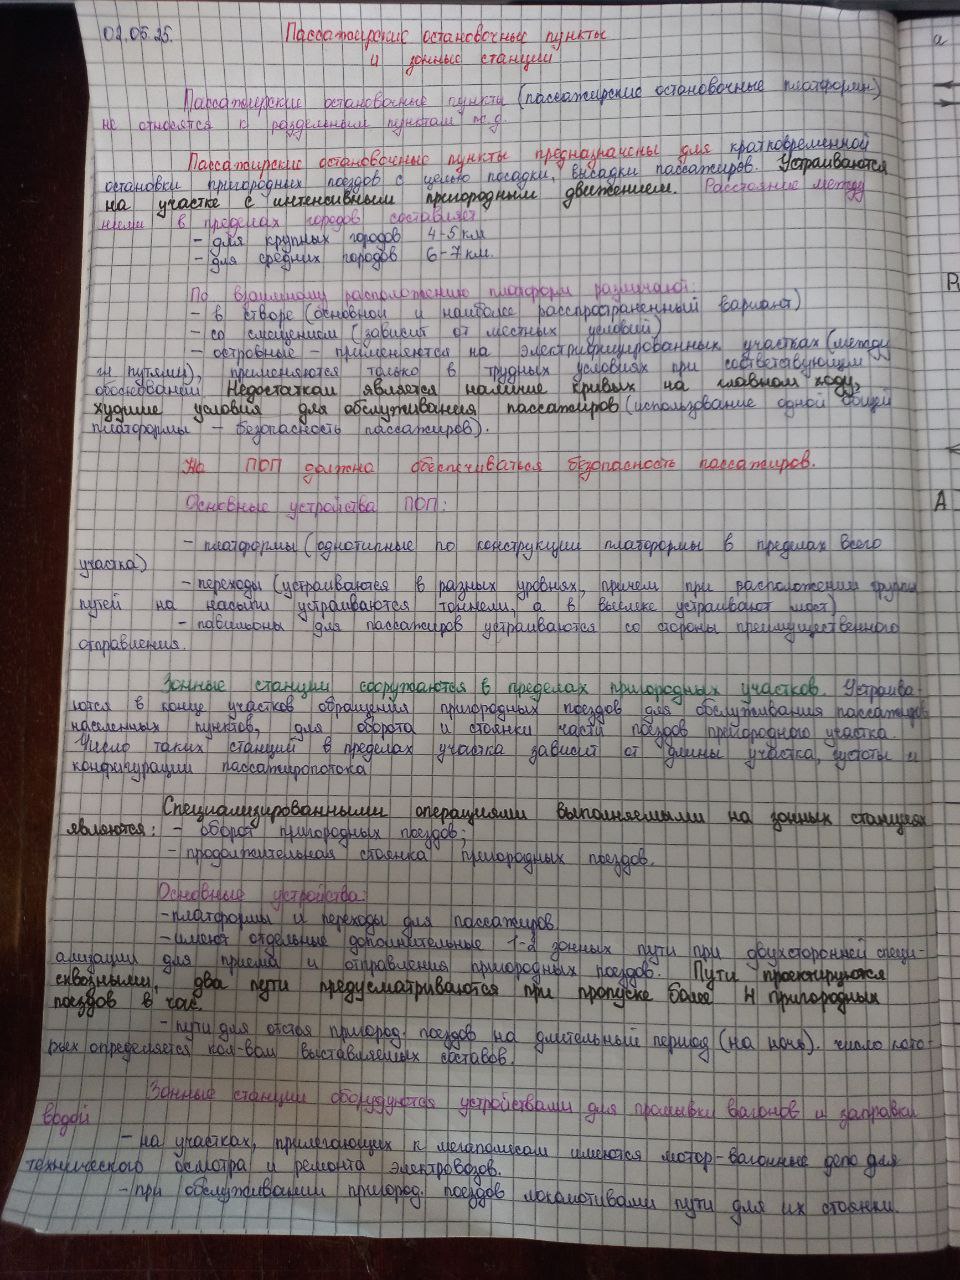 02.05.25. Пассажирские остановочные пункты
и зонные станции
Пассажирские остановочные пункты (пассажирские остановочные платформы)
не относятся к раздельным пунктам ж.д.
Пассажирские остановочные пункты предназначены для кратковременной
остановки пригородных поездов с целью посадки, высадки пассажиров. Устраиваются
на участке с интенсивным пригородным движением. Расстояние между
ними в пределах городов составляет
- для крупных городов 4-5 км
- для средних городов 6-7 км.
По взаимному расположению платформ различают:
- в створе (основной и наиболее расспространенный вариант)
- со смещением (зависит от местных условий)
- островные - применяются на электрифицированных участках (между
гл путями), применяются только в трудных условиях при соответствующем
обосновании Недостаткам является наличие кривых на главном ходу,
худшие условия для обслуживания пассажиров (использование одной общей
платформы - безопасность пассажиров).
На ПОП должна обеспечиваться безопасность пассажиров.
Основные устройства ПОП:
- платформы (однотипные по конструкции платформы в пределах всего
участка)
- переходы (устраиваются в разных уровнях, причем при расположении группы
путей на насыпи устраиваются тоннели, а в выемке устраивают мост)
- павильоны для пассажиров устраиваются со стороны преимущественного
отправления.
Зонные станции сооружаются в пределах пригородных участков. Устраива-
ются в конце участков обращения пригородных поездов для обслуживания пассажиров
населенных пунктов, для оборота и стоянки части поездов пригородного участка.
Число таких станций в пределах участка зависит от длины участка, густоты и
конфигурации пассажиропотока
Специализированными операциями выполняемыми на зонных станциях
являются: - оборот пригородных поездов;
- продолжительная стоянка пригородных поездов.
Основные устройства:
- платформы и переходы для пассажиров
- имеют отдельные дополнительные 1-2 зонных пути при двухсторонней специ-
ализации для приема и отправления пригородных поездов. Пути проектируются
сквозными, два пути предусматриваются при пропуске более 4 пригородных
поездов в час.
- пути для отстоя пригород. поездов на длительный период (на ночь). число кото-
рых определяется кол-вом выставляемых составов.
Зонные станции оборудуются устройствами для промывки вагонов и заправки
водой
- на участках, прилегающих к мегаполисам имеются мотор-вагонные депо для
технического осмотра и ремонта электровозов.
- при обслуживании пригород. поездов локомотивами пути для их стоянки.
а
В
А